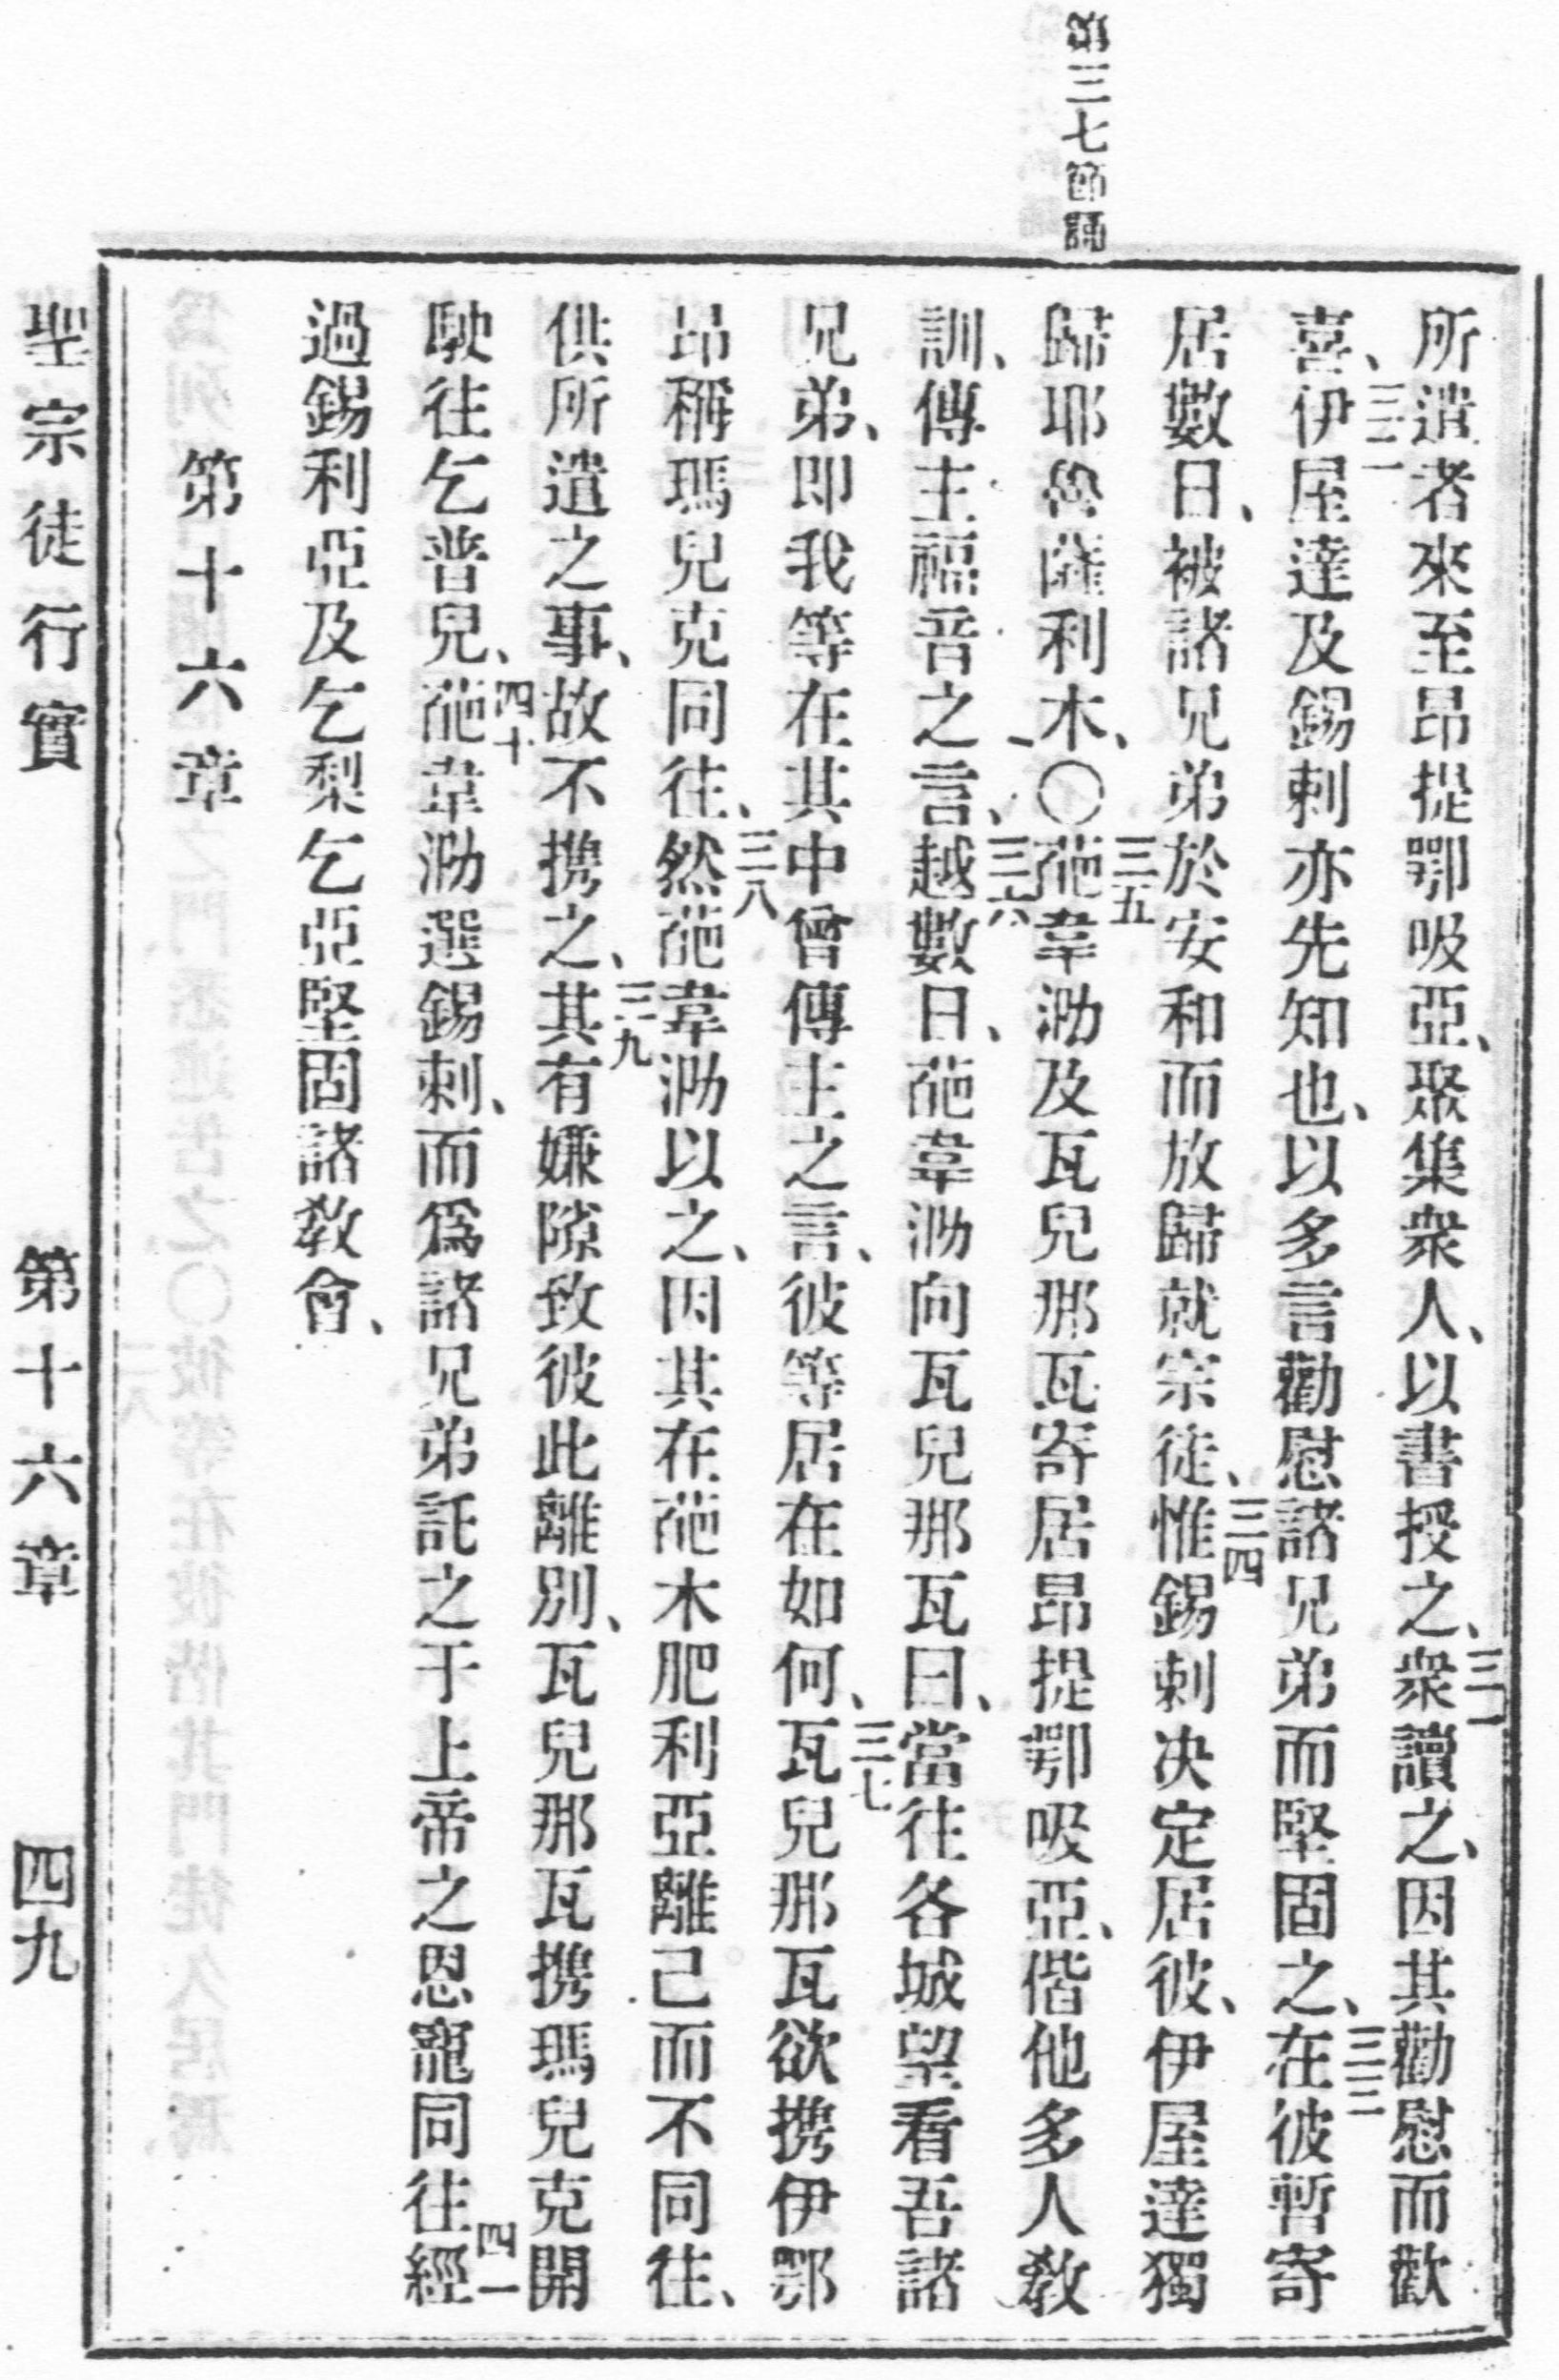 第三七節誦
所遣者來至昂提鄂吸亞、聚集衆人、以書授之、三一衆讀之、因其勸慰而歡
喜、三二伊屋達及錫剌亦先知也、以多言勸慰諸兄弟而堅固之、三三在彼暫寄
居數日、被諸兄弟於安和而放歸就宗徒、三四惟錫剌决定居彼、伊屋達獨
歸耶魯薩利木、〇三五葩韋泐及瓦兒那瓦寄居昂提鄂吸亞、偕他多人敎
訓、傳主福音之言、三六越數日、葩韋泐向瓦兒那瓦曰、當往各城望看吾諸
兄弟、即我等在其中曾傳主之言、彼等居在如何、三七瓦兒那瓦欲携伊鄂
昂稱瑪兒克同往、三八然葩韋泐以之、因其在葩木肥利亞離己而不同往、
供所遣之事、故不携之、三九其有嫌隙致彼此離別、瓦兒那瓦携瑪兒克開
駛往乞普兒、四十葩韋泐選錫剌、而爲諸兄弟託之于上帝之恩寵同往四一經
過錫利亞及乞梨乞亞堅固諸敎會、
第十六章
聖宗徒行實 第十六章 四九